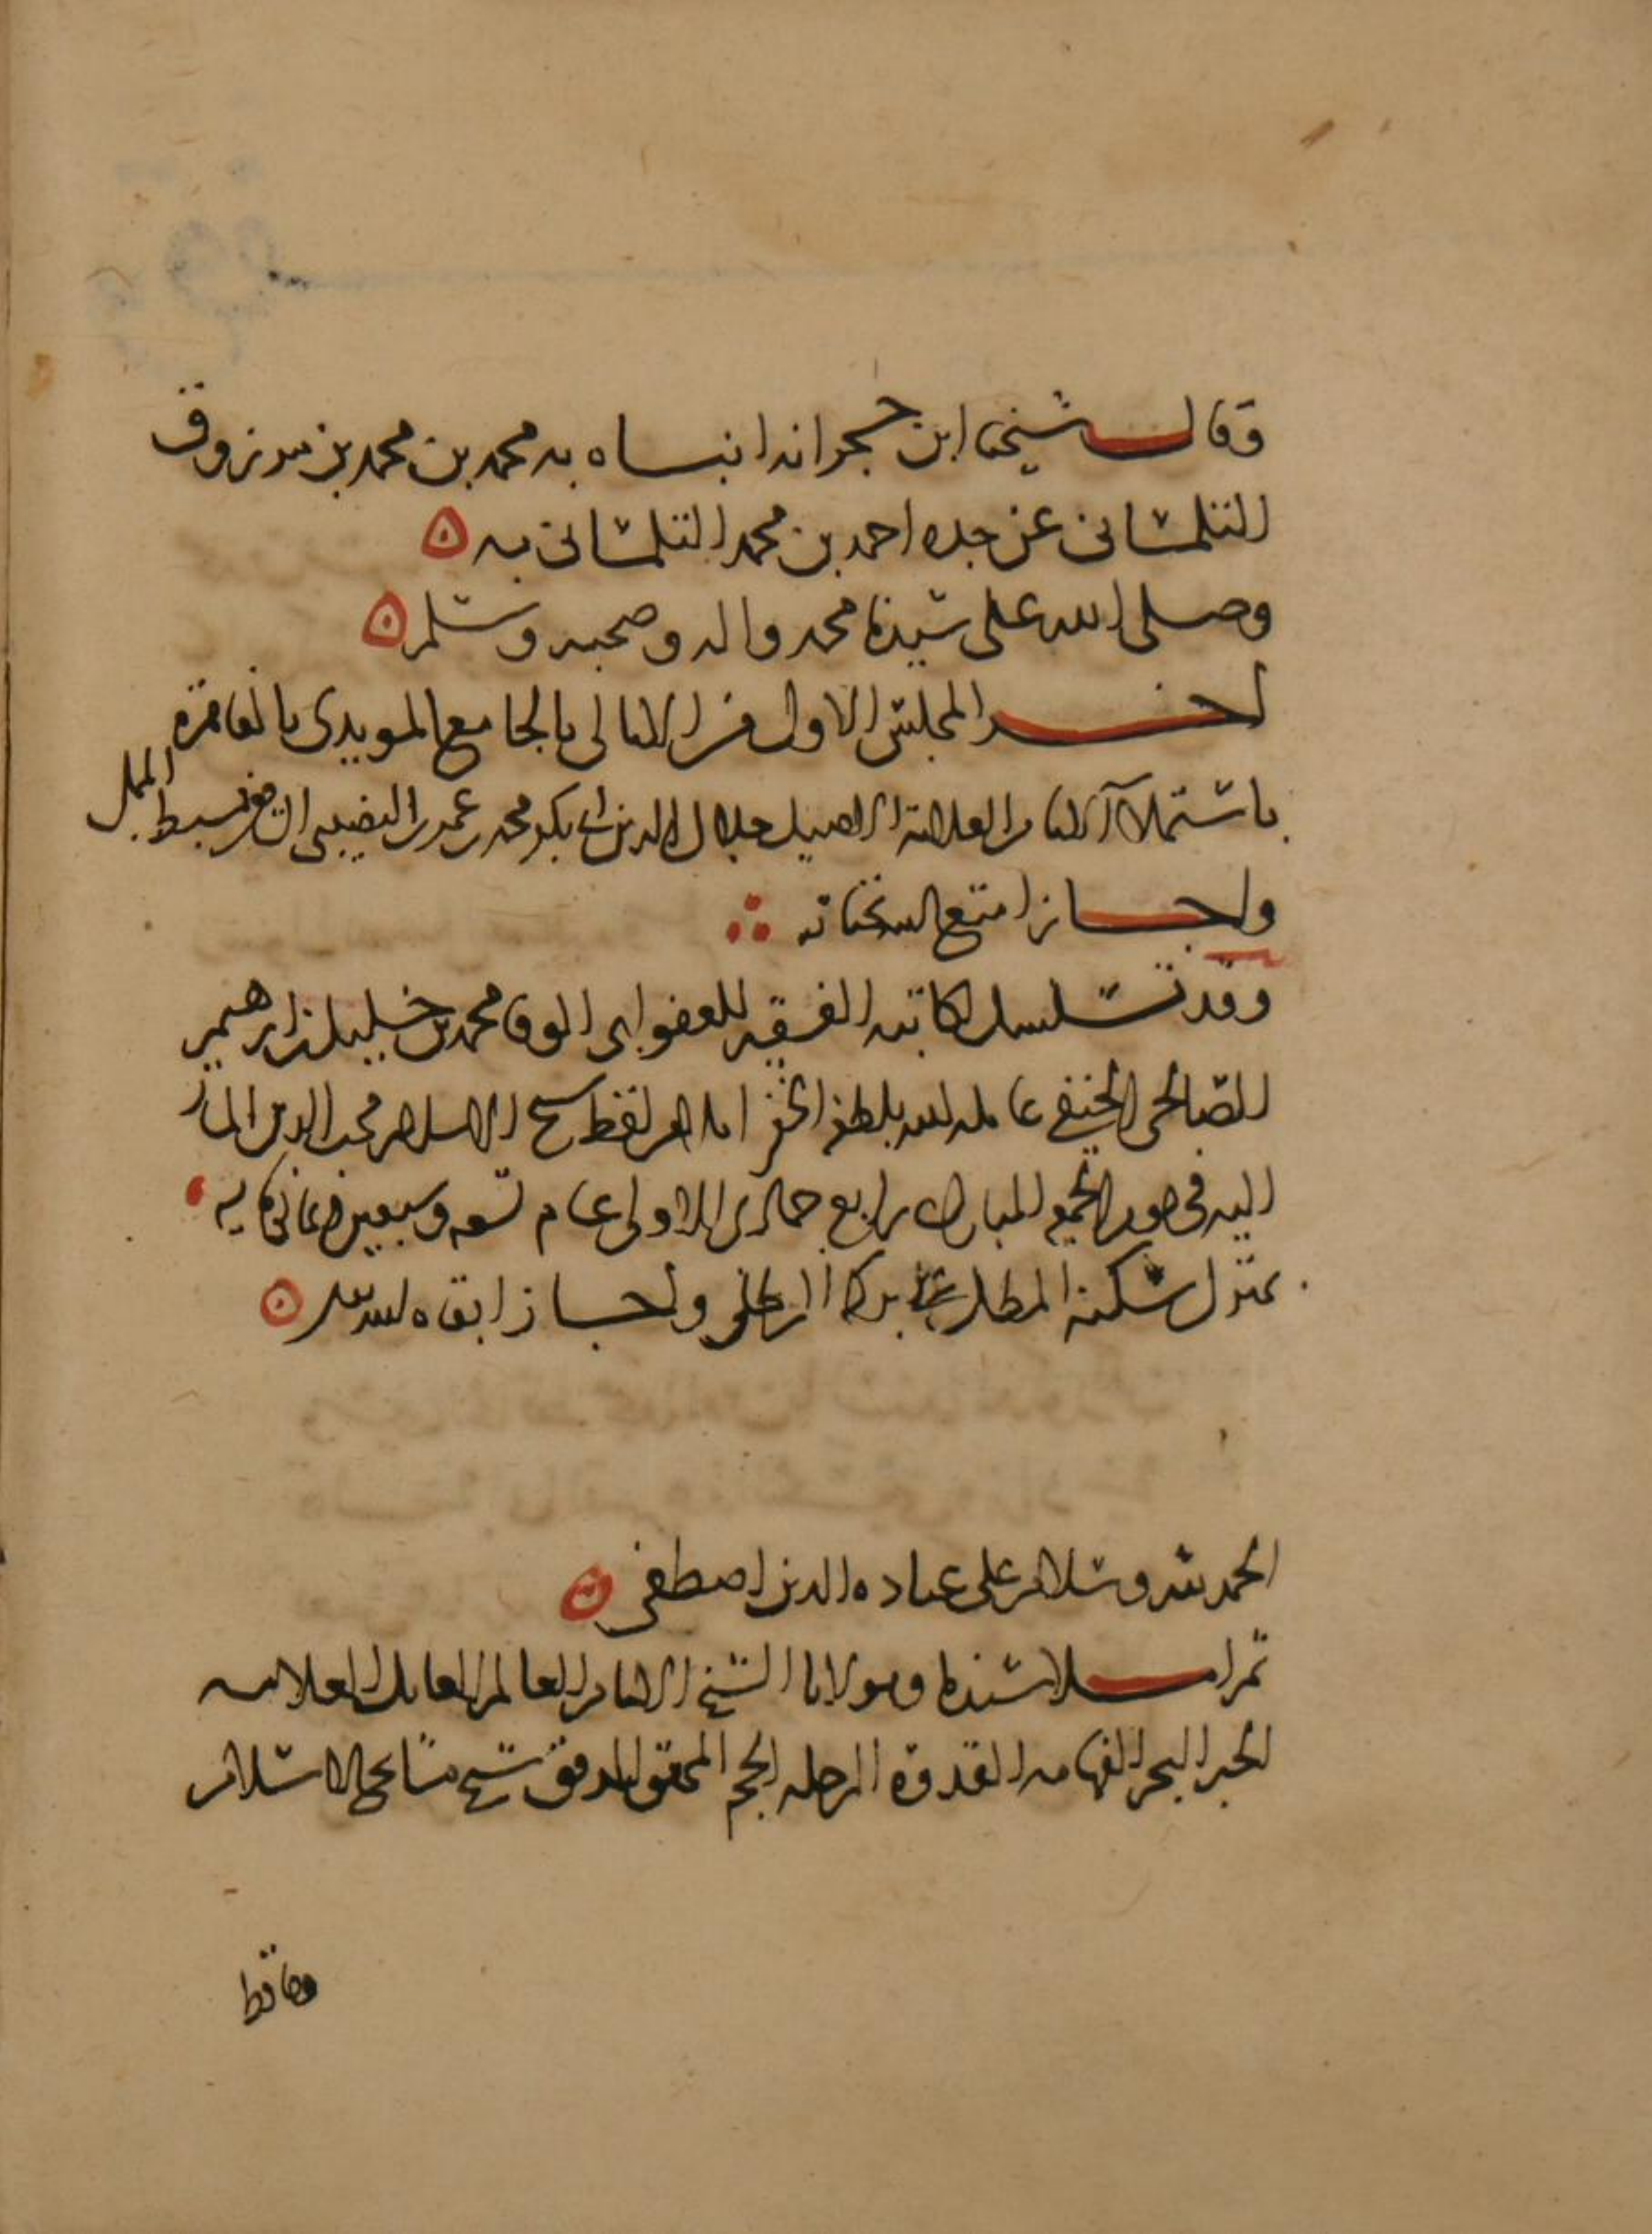 وقال شيخنا ابن حجر انه انبساه به محمد بن محمد بن مرزوق
التلمسانى عن جده احمد بن محمد التلمسانى به
وصلى الله على سيدنا محمد واله وصحبه وسلم
اخر المجلس الاول من الامالى بالجامع المويدى بالقاهرة
باستملا الامام العلامة الاصيل جلال الدين ابى بكر محمد بن عمر بن النصيبى سبط المملى
واجاز امتع الله بحياته
وقد تسلسل لكاتبه الفقير للعفو ابى الوفا محمد بن خليل بن ابرهيم
الصالحى الحنفى عامله الله بلطفه الخفى املا من لفظ شيخ الاسلام محب الدين المشار
اليه فى يوم الجمعه المبارك رابع جمادى الاولى عام تسعه وسبعين وثمانمايه
بمنزل سكنه المطل على بركة الرطلى واجاز ابقاه الله تعالى
الحمد لله وسلام على عباده الذين اصطفى
ثم املا سيدنا ومولانا الشيخ الامام العالم العامل العلامه
الحبر البحر الفهامه القدوة الرحله الحجه المحقق المدقق شيخ مشايخ الاسلام
وحافظ